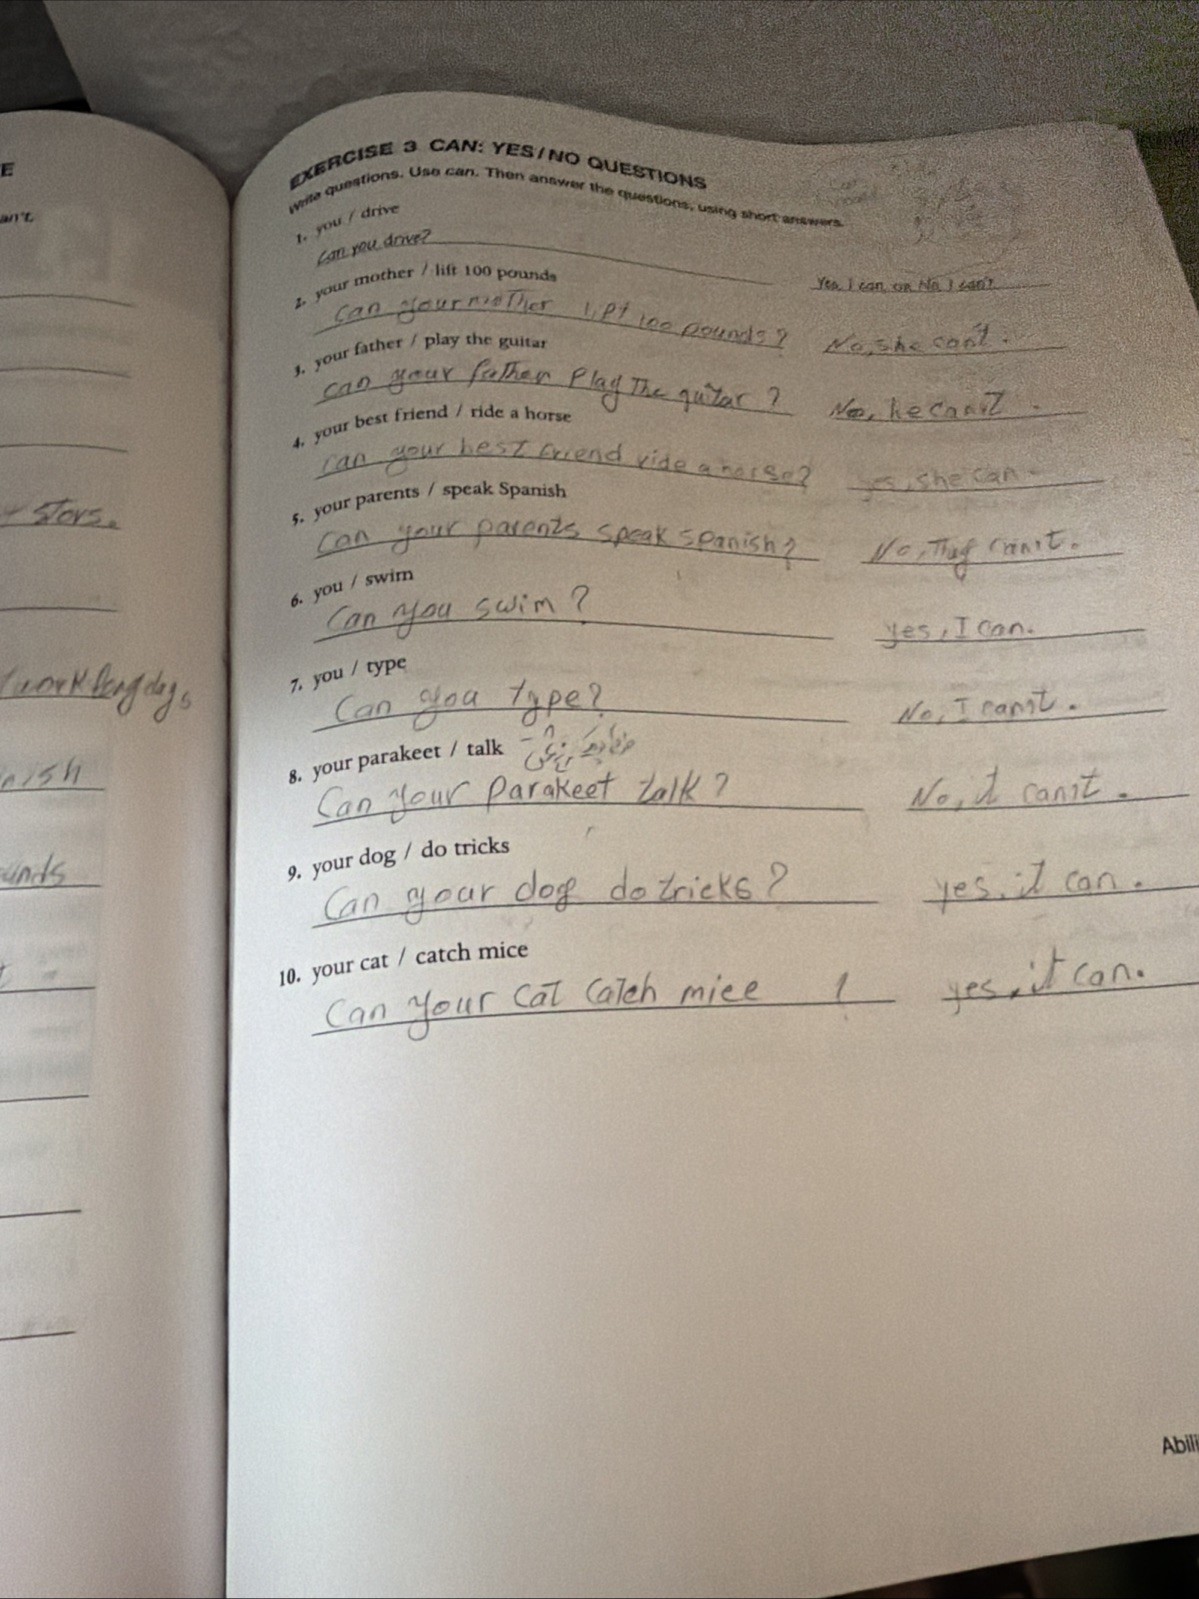 E
an't.
stors.
work long days
nish
unds
EXERCISE 3 CAN: YES/NO QUESTIONS
Write questions. Use can. Then answer the questions, using short answers.
1. you / drive
Can you drive? Yes, I can. or No, I can't.
2. your mother / lift 100 pounds
can your mother lift 100 pounds? No, she can't.
3. your father / play the guitar
can your father Play The guitar? No, he can't.
4. your best friend / ride a horse
can your best friend ride a horse? yes, she can.
5. your parents / speak Spanish
can your parents speak spanish? No, They can't.
6. you / swim
Can you swim? yes, I can.
7. you / type
Can you type? No, I can't.
8. your parakeet / talk
Can your Parakeet talk? No, it can't.
9. your dog / do tricks
Can your dog do tricks? yes, it can.
10. your cat / catch mice
Can your cat catch mice ? yes, it can.
Abili